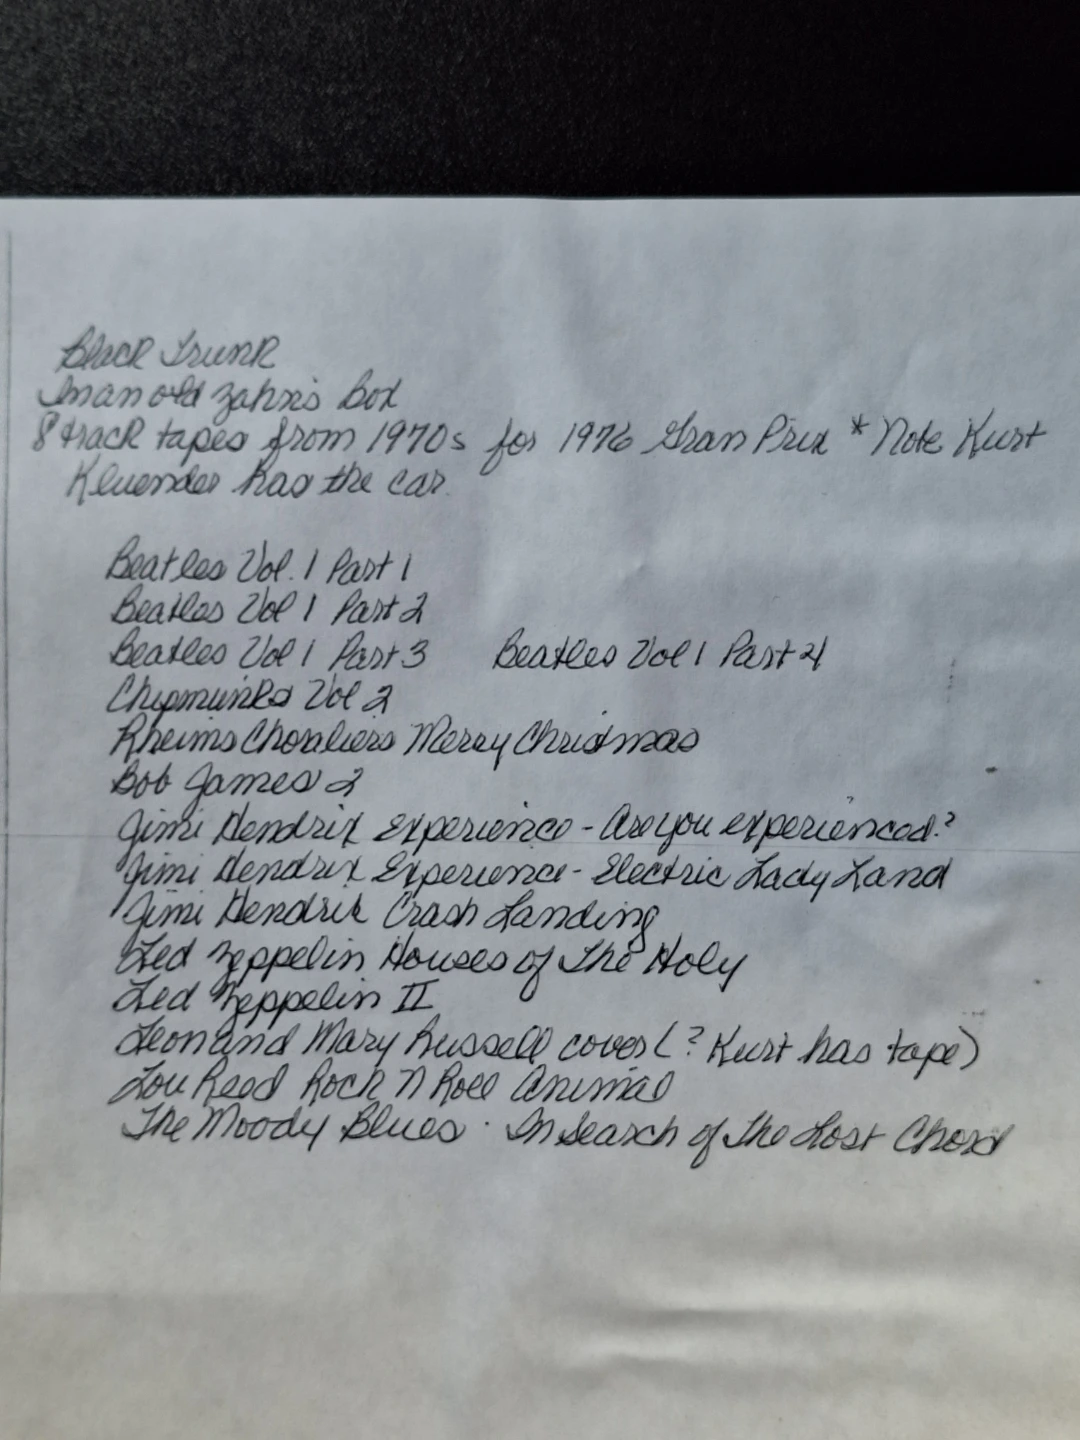 Black Trunk
In an old Zahn's Box
8 track tapes from 1970s for 1976 Gran Prix * Note Kurt
Kluender has the car.
Beatles Vol. 1 Part 1
Beatles Vol 1 Part 2
Beatles Vol 1 Part 3 Beatles Vol 1 Part 4
Chipmunks Vol 2
Rheims Choraliers Merry Christmas
Bob James 2
Jimi Hendrix Experience - Are you experienced?
Jimi Hendrix Experience - Electric Lady Land
Jimi Hendrix Crash Landing
Led Zeppelin Houses of The Holy
Led Zeppelin II
Leon and Mary Russell cover (? Kurt has tape)
Lou Reed Rock N Roll Animal
The Moody Blues · In Search of The Lost Chord